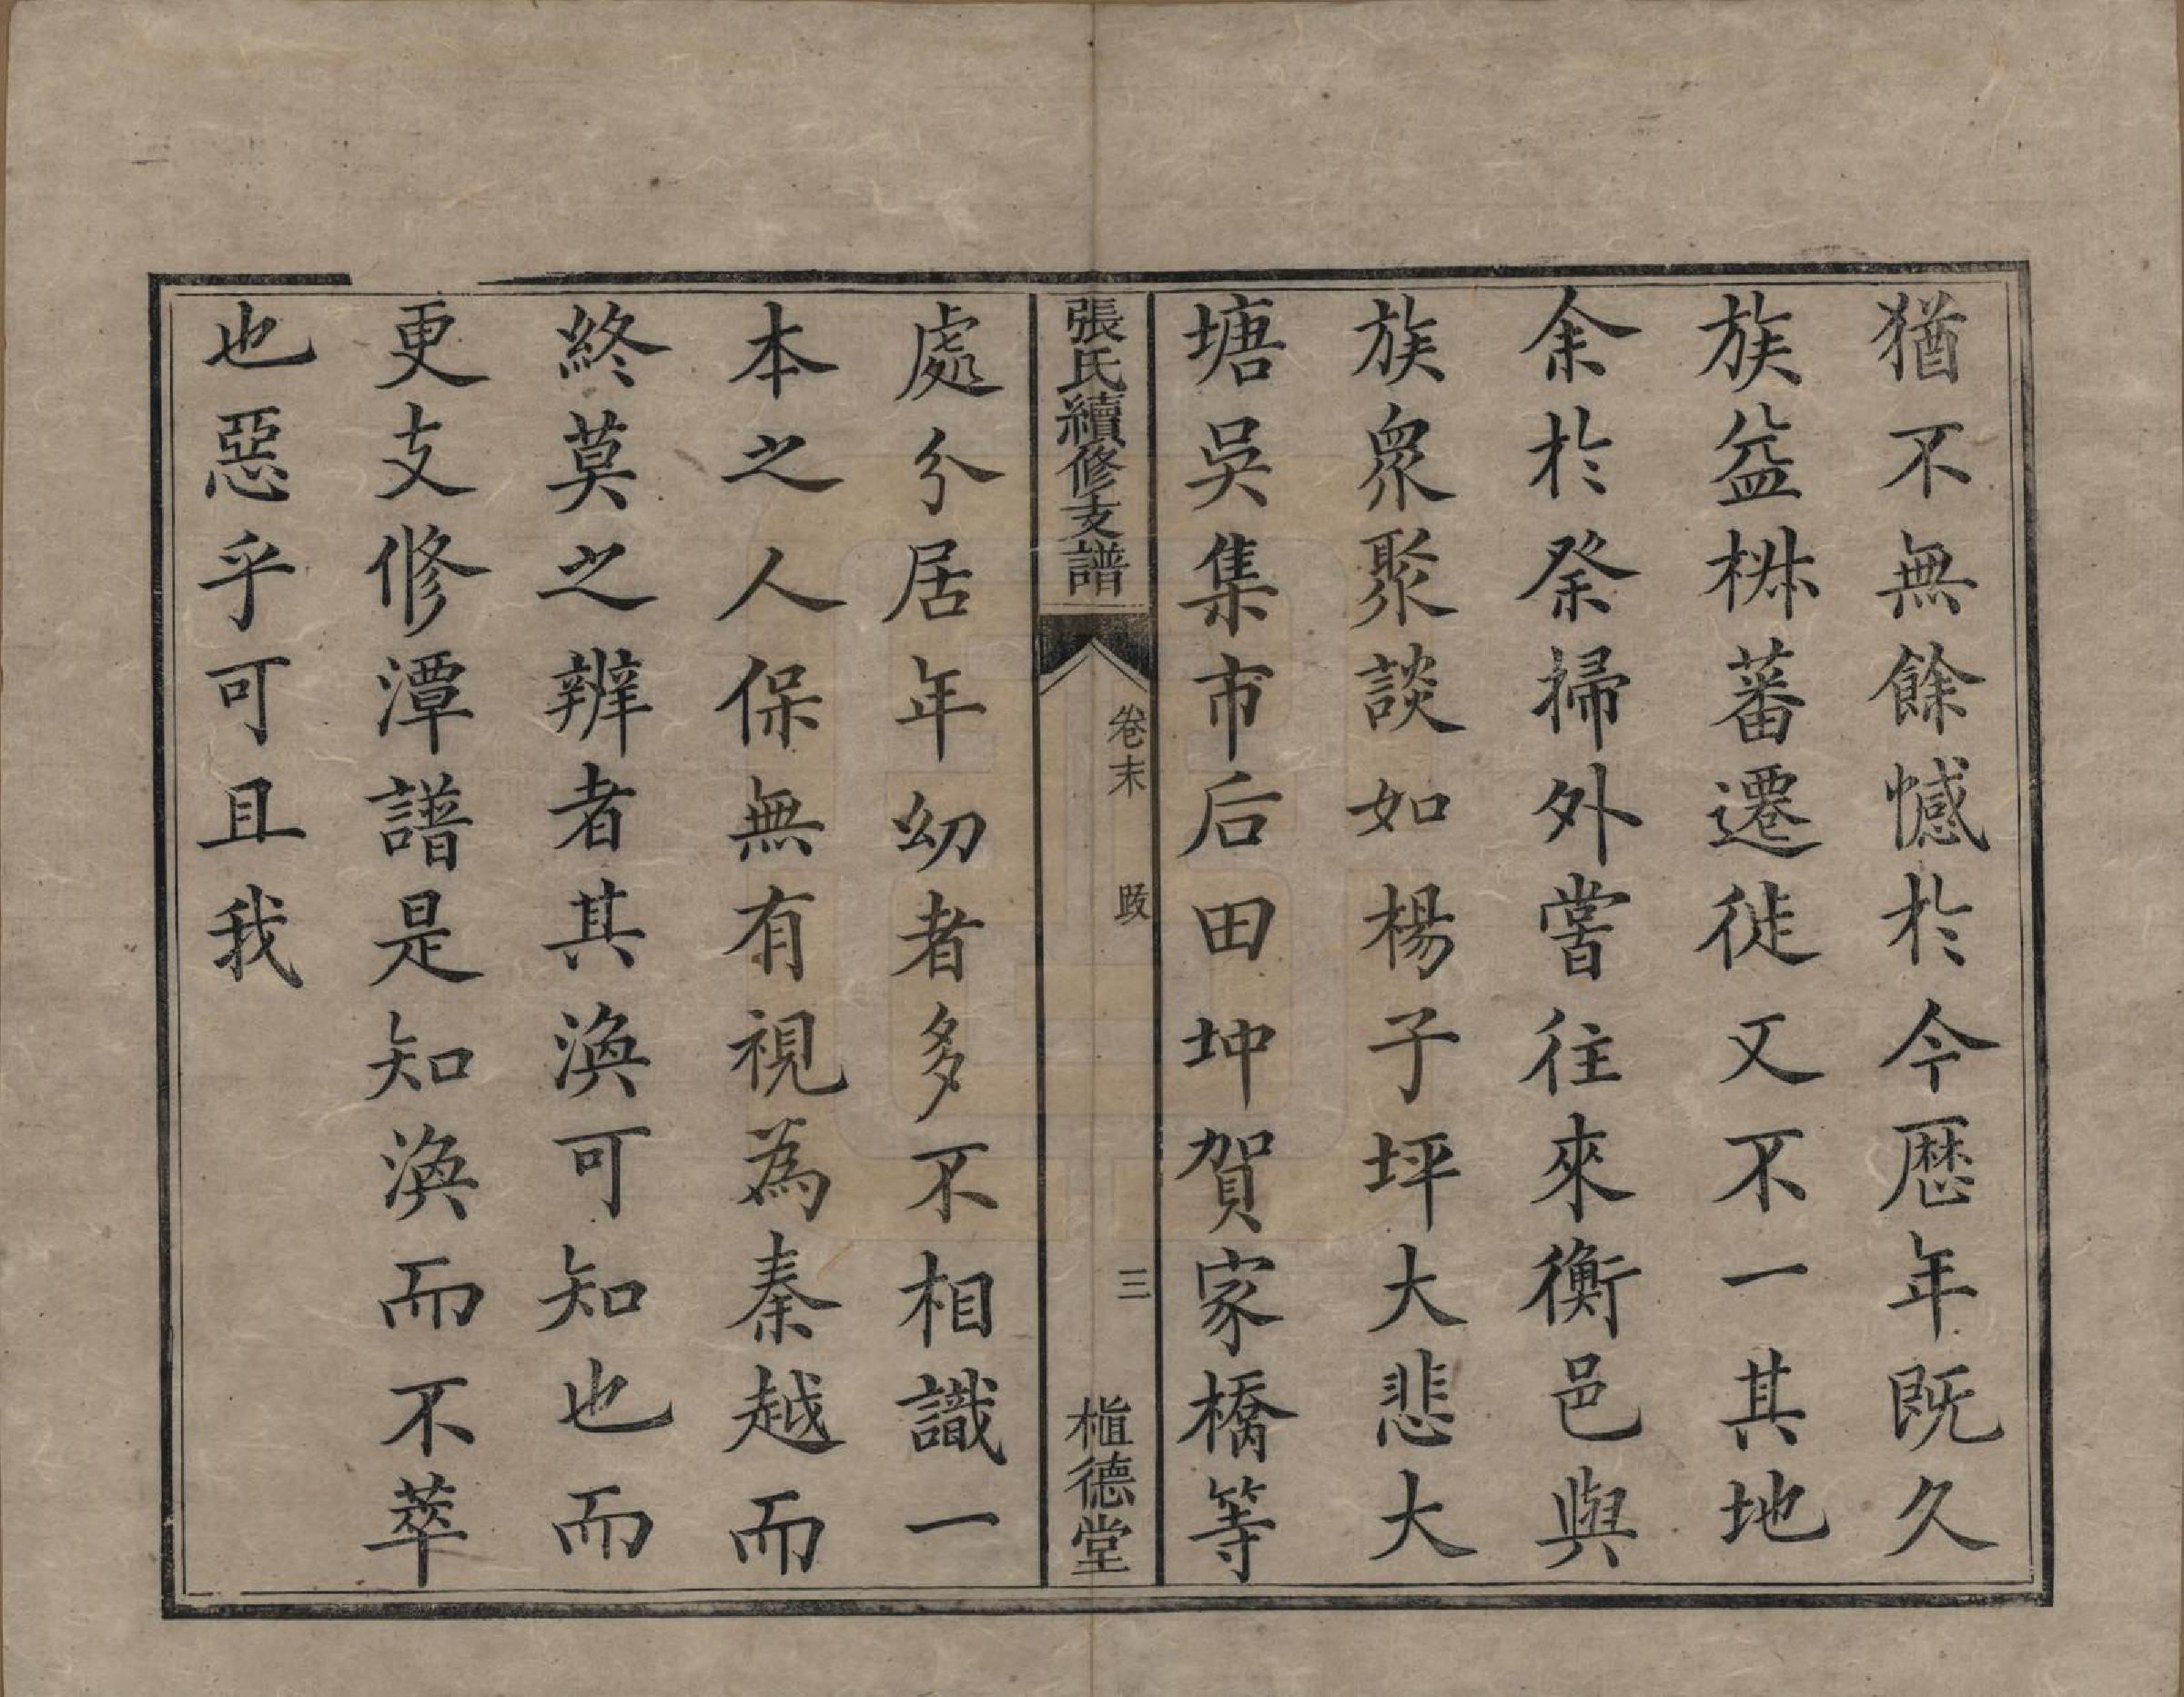 猶不無餘憾於今歷年既久
族益椕蕃遷徙又不一其地
余於祭掃外嘗往來衡邑與
族衆聚談如楊子坪大悲大
塘吳集市后田坤賀家橋等
張氏續修支譜
卷末
跋
三
植德堂
處分居年幼者多不相識一
本之人保無有視為秦越而
終莫之辨者其渙可知也而
更支修潭譜是知渙而不萃
也惡乎可且我